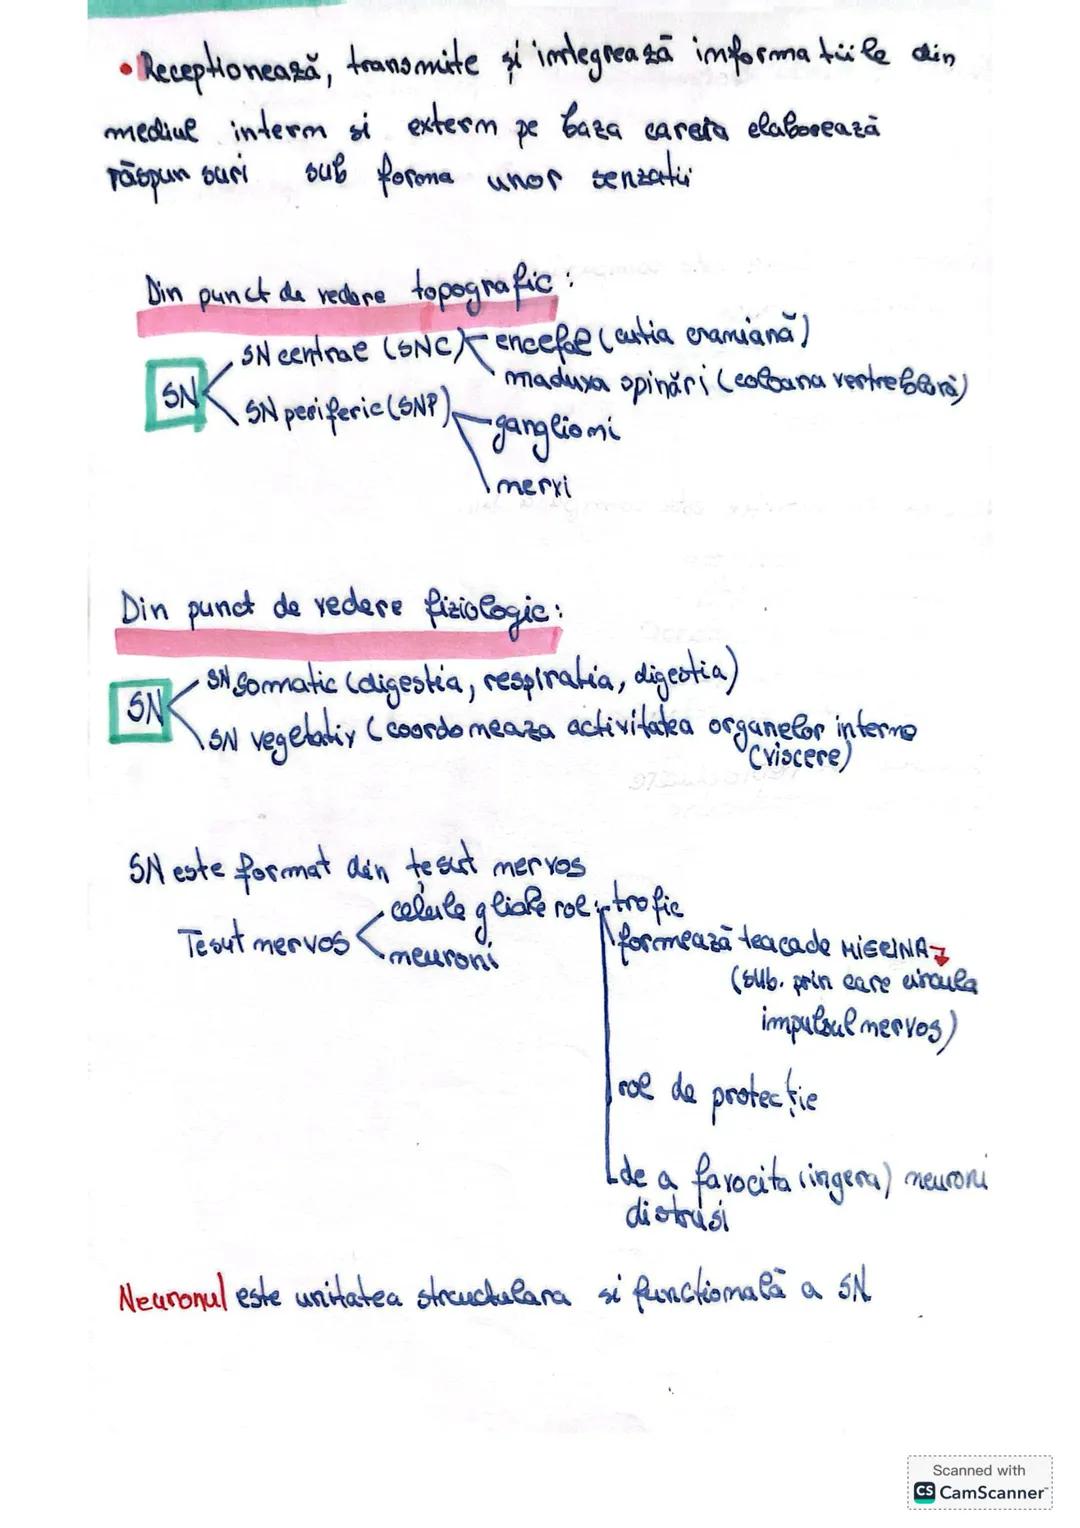 • Receptionează, transmite și integrează informatiile din
mediul intern si extern pe baza careia elaborează
răspunsuri sub forma unor senzatii
Din punct de vedere topografic:
SN
SN central (SNC)
encefal (cutia craniană)
maduva spinări (coloana vertreblară)
SN periferic (SNP)
ganglioni
nervi
Din punct de vedere fiziologic:
SN
SN Somatic (digestia, respiratia, digestia)
SN vegetativ (coordoneaza activitatea organelor interne
(viscere)
SN este format din țesut nervos
Tesut nervos
celule gliale rol: trofic
neuroni
formează teaca de MIELINA
(sub. prin care circula
impulsul nervos)
rol de protecție
de a favocita (ingera) neuroni
distrusi
Neuronul este unitatea structulara si functională a SN
Scanned with
CS CamScanner